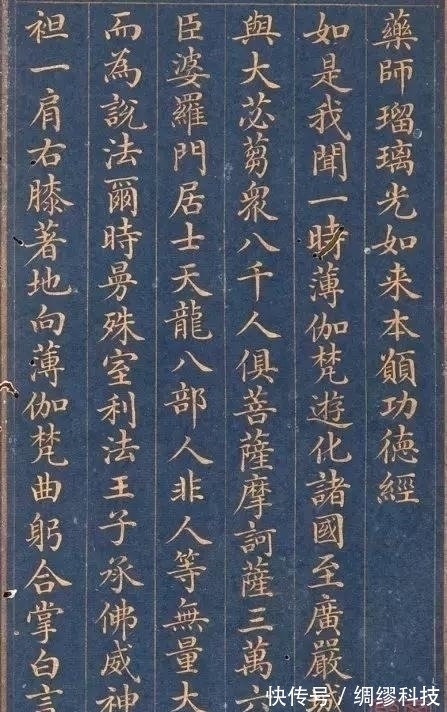 藥師瑠璃光如来本願功德經
如是我聞一時薄伽梵遊化諸國至廣嚴
與大苾芻衆八千人俱菩薩摩訶薩三萬六
臣婆羅門居士天龍八部人非人等無量大
而為說法爾時曼殊室利法王子承佛威神
袒一肩右膝著地向薄伽梵曲躬合掌白言
快传号/绸缪科技